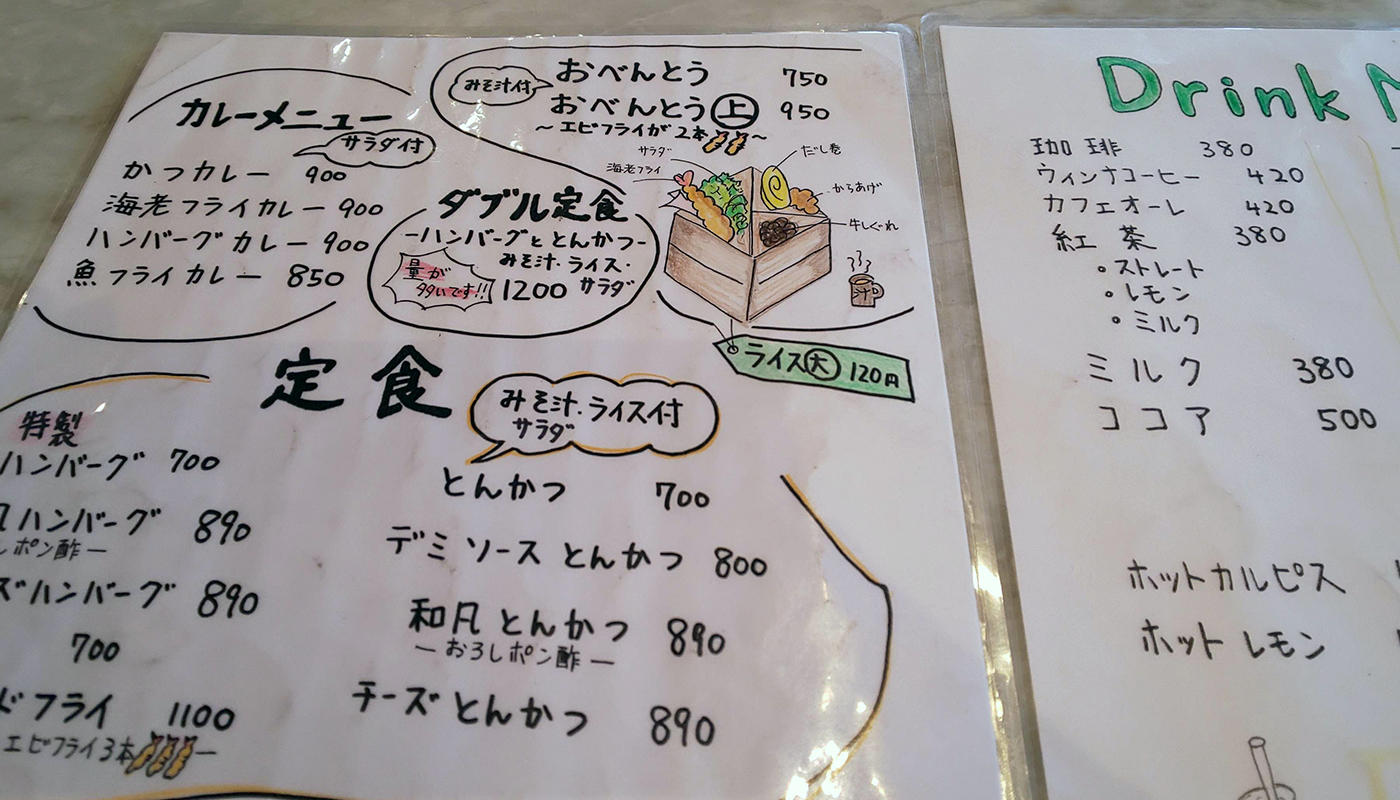 カレーメニュー
サラダ付
かつカレー 900
海老フライカレー 900
ハンバーグカレー 900
魚フライカレー 850
みそ汁付
おべんとう 750
おべんとう㊤ 950
〜エビフライが2本〜
サラダ
海老フライ
だし巻
からあげ
牛しぐれ
汁
ダブル定食
-ハンバーグととんかつ-
みそ汁・ライス・
サラダ
量が
多いです!!
1200
ライス大 120円
定食
みそ汁・ライス付
サラダ
特製
ハンバーグ 700
ハンバーグ 890
ポン酢ー
ズハンバーグ 890
700
フライ 1100
エビフライ3本ー
とんかつ 700
デミソースとんかつ 800
和凡とんかつ 890
ーおろしポン酢ー
チーズとんかつ 890
Drink
珈琲 380
ウィンナコーヒー 420
カフェオーレ 420
紅茶 380
・ストレート
・レモン
・ミルク
ミルク 380
ココア 500
ホットカルピス
ホットレモン